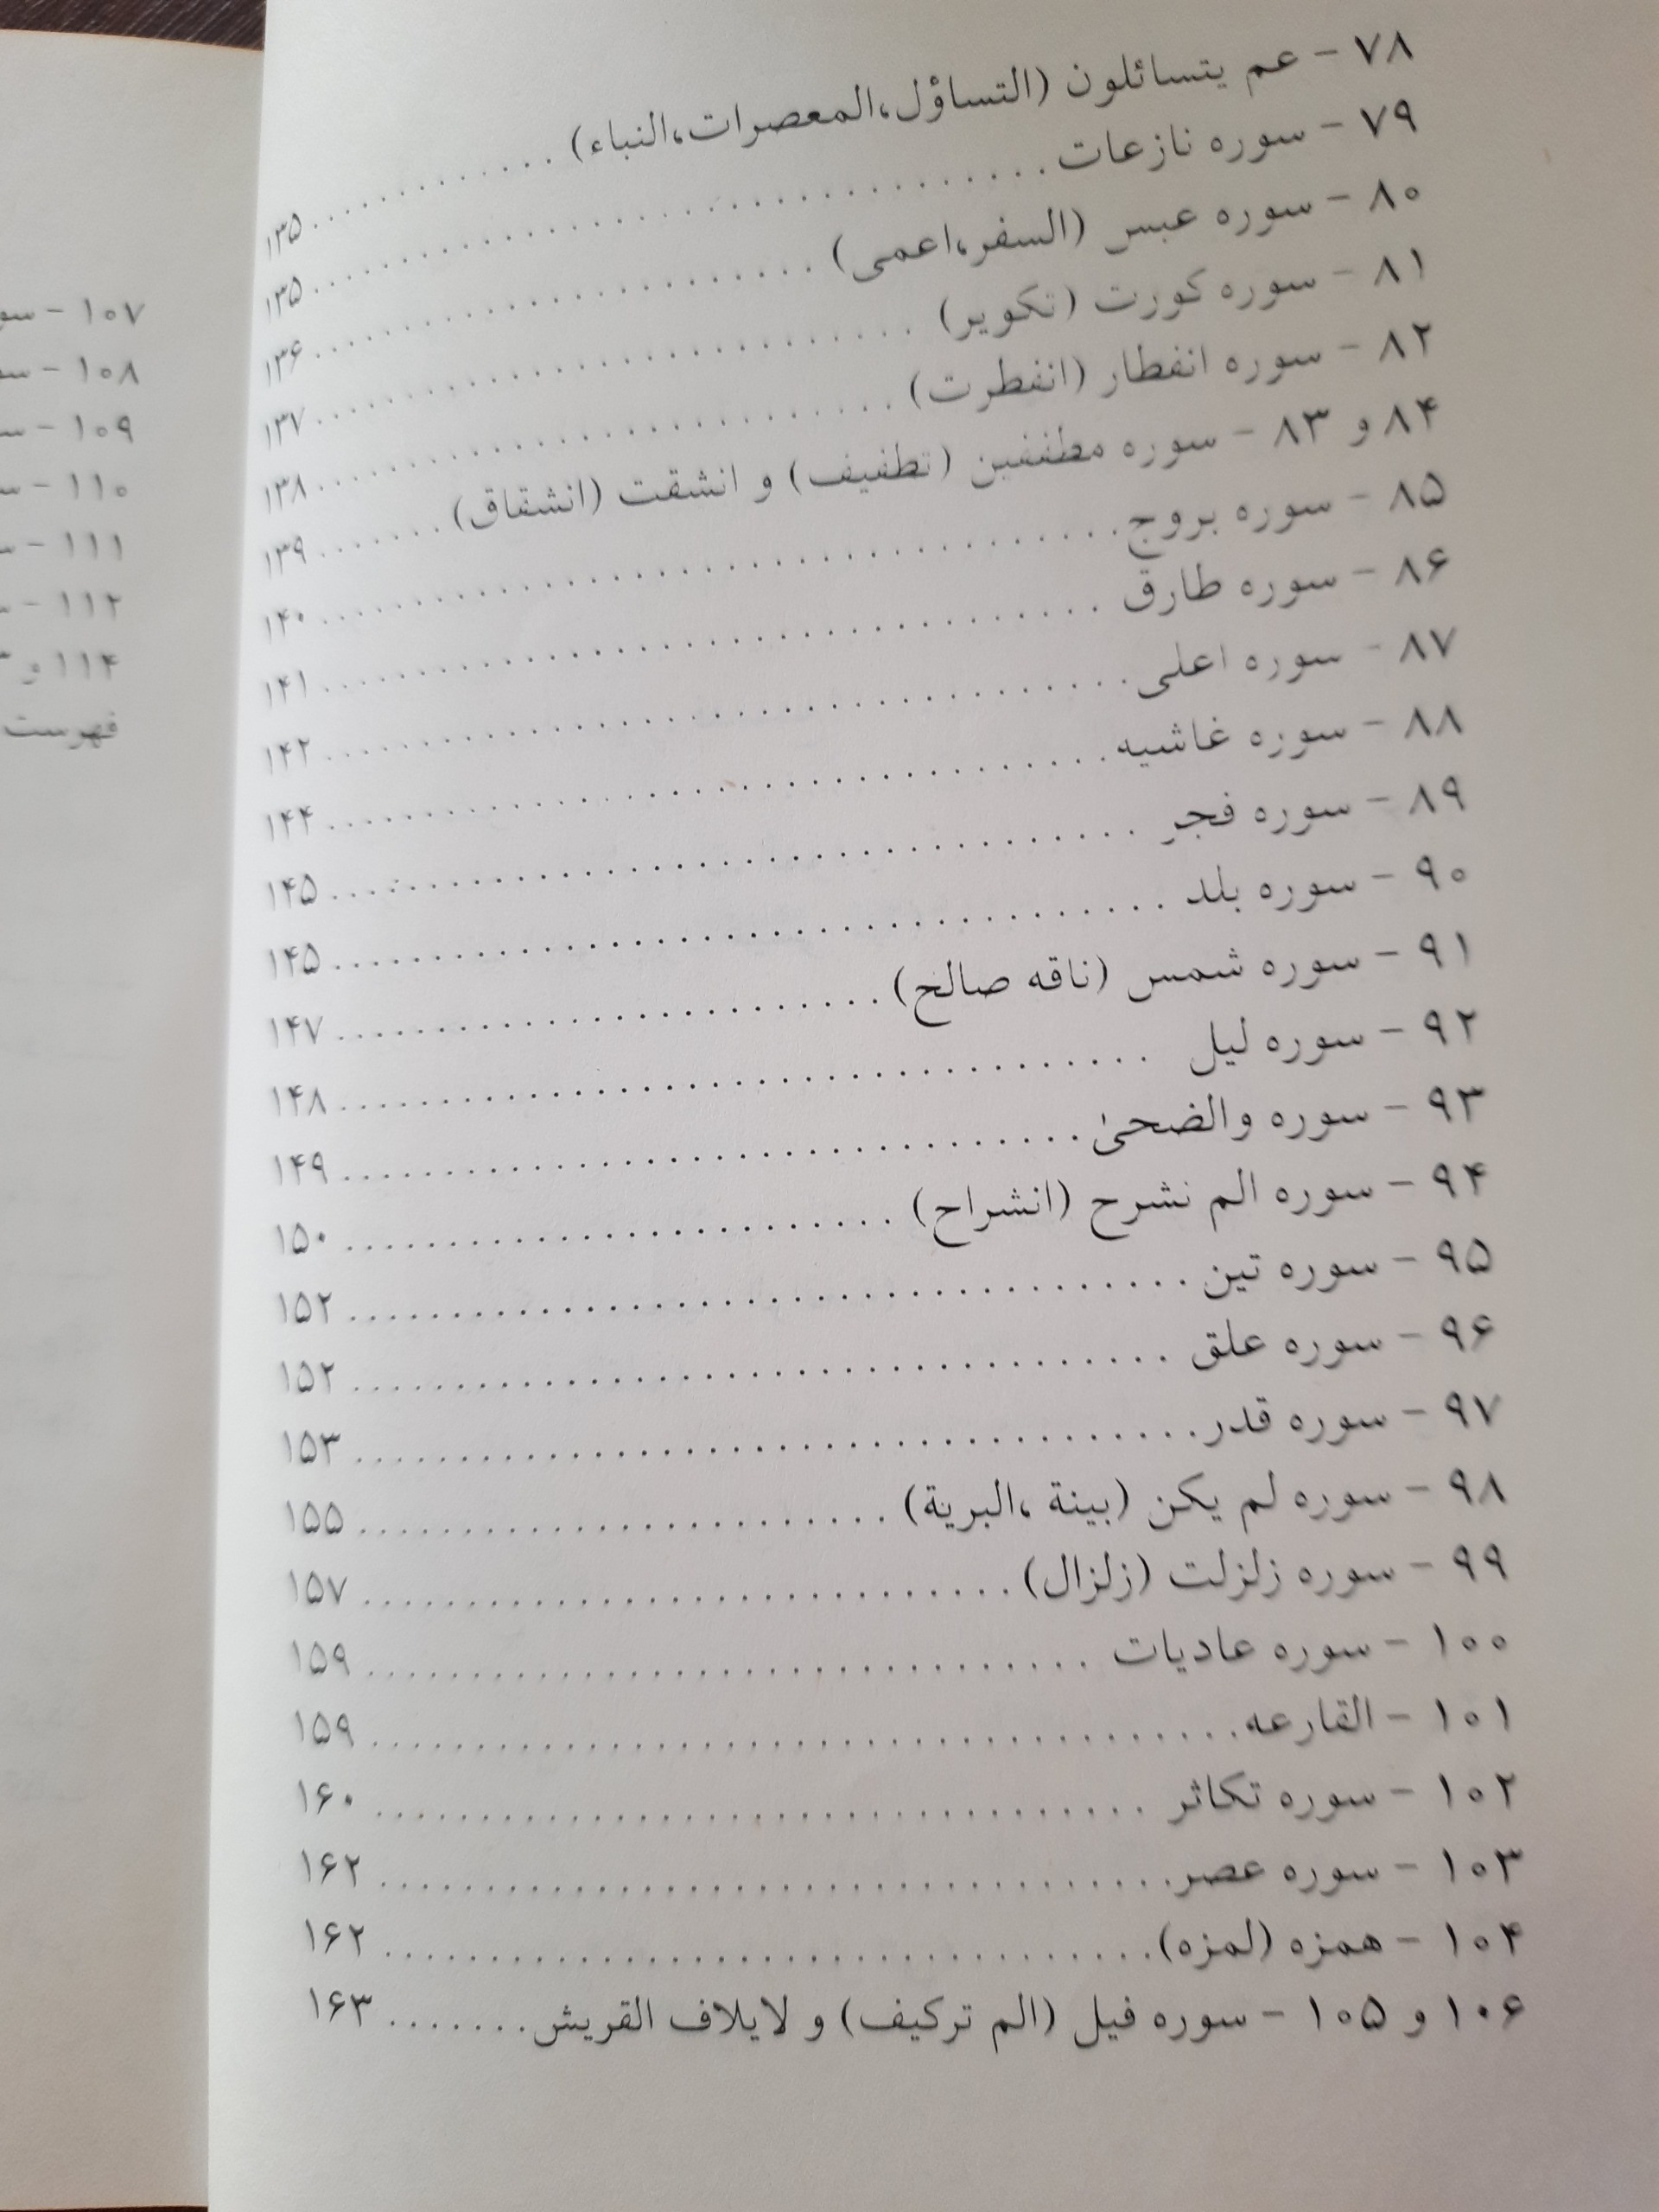 ۷۸ - عم یتسائلون (التساؤل،المعصرات،النباء) . . . . . . . . . . . . ۱۳۵
۷۹ - سوره نازعات . . . . . . . . . . . . ۱۳۵
۸۰ - سوره عبس (السفر،اعمی) . . . . . . . . . . . . ۱۳۶
۸۱ - سوره کورت (تکویر) . . . . . . . . . . . . ۱۳۷
۸۲ - سوره انفطار (انفطرت) . . . . . . . . . . . . ۱۳۸
۸۴ و ۸۳ - سوره مطففین (تطفیف) و انشقت (انشقاق) . . . . . . . ۱۳۹
۸۵ - سوره بروج . . . . . . . . . . . . ۱۴۰
۸۶ - سوره طارق . . . . . . . . . . . . ۱۴۱
۸۷ - سوره اعلی . . . . . . . . . . . . ۱۴۲
۸۸ - سوره غاشیه . . . . . . . . . . . . ۱۴۴
۸۹ - سوره فجر . . . . . . . . . . . . ۱۴۵
۹۰ - سوره بلد . . . . . . . . . . . . ۱۴۵
۹۱ - سوره شمس (ناقه صالح) . . . . . . . . . . . . ۱۴۷
۹۲ - سوره لیل . . . . . . . . . . . . ۱۴۸
۹۳ - سوره والضحیٰ . . . . . . . . . . . . ۱۴۹
۹۴ - سوره الم نشرح (انشراح) . . . . . . . . . . . . ۱۵۰
۹۵ - سوره تین . . . . . . . . . . . . ۱۵۲
۹۶ - سوره علق . . . . . . . . . . . . ۱۵۲
۹۷ - سوره قدر . . . . . . . . . . . . ۱۵۳
۹۸ - سوره لم یکن (بینة ،البریة) . . . . . . . . . . . . ۱۵۵
۹۹ - سوره زلزلت (زلزال) . . . . . . . . . . . . ۱۵۷
۱۰۰ - سوره عادیات . . . . . . . . . . . . ۱۵۹
۱۰۱ - القارعه . . . . . . . . . . . . ۱۵۹
۱۰۲ - سوره تکاثر . . . . . . . . . . . . ۱۶۰
۱۰۳ - سوره عصر . . . . . . . . . . . . ۱۶۲
۱۰۴ - همزه (لمزه) . . . . . . . . . . . . ۱۶۲
۱۰۶ و ۱۰۵ - سوره فیل (الم ترکیف) و لایلاف القریش . . . . . . . ۱۶۳
۱۰۷ -
۱۰۸ -
۱۰۹ -
۱۱۰ -
۱۱۱ -
۱۱۲ -
۱۱۴ و
فهرست